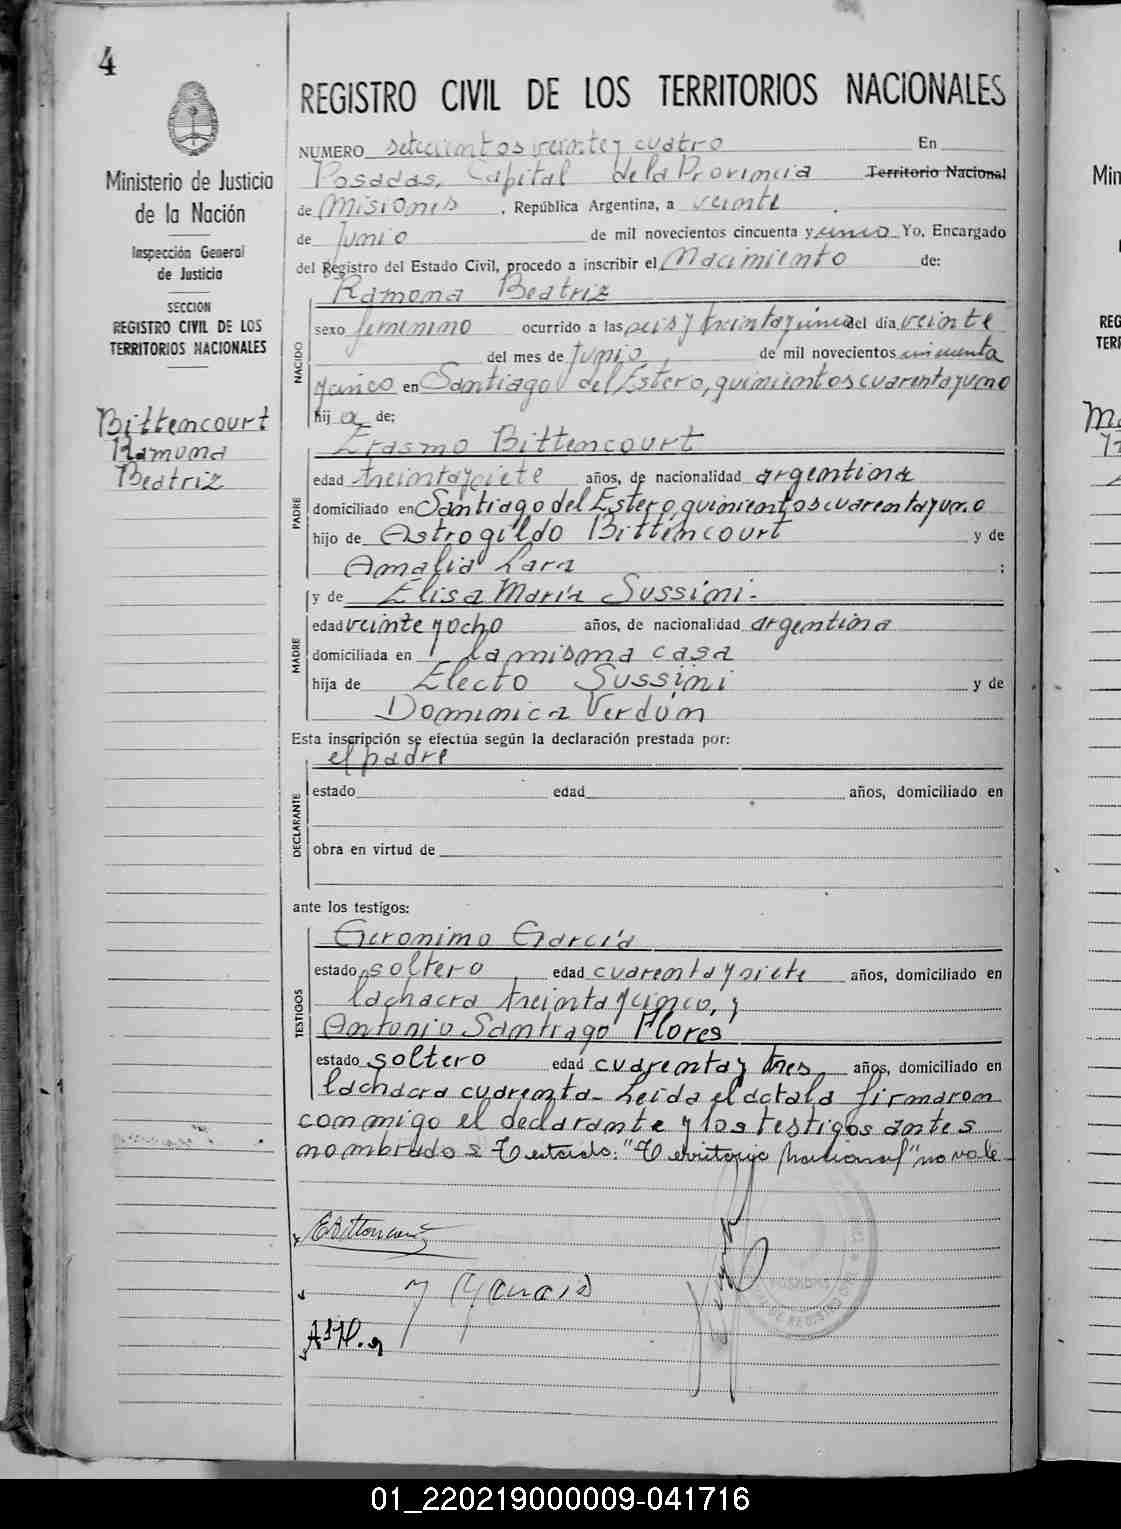 4
Ministerio de Justicia
de la Nación
Inspección General
de Justicia
SECCION
REGISTRO CIVIL DE LOS
TERRITORIOS NACIONALES
Bittencourt
Ramona
Beatriz
REGISTRO CIVIL DE LOS TERRITORIOS NACIONALES
NUMERO setecientos veinte y cuatro En
Posadas, Capital de la Provincia Territorio Nacional
de Misiones, República Argentina, a veinte
de Junio de mil novecientos cincuenta y cinco Yo, Encargado
del Registro del Estado Civil, procedo a inscribir el Nacimiento de:
Ramona Beatriz
NACIDO
sexo femenino ocurrido a las seis y treinta y cinco del día veinte
del mes de Junio, de mil novecientos cincuenta
y cinco en Santiago del Estero, quinientos cuarenta y uno
hija de:
Erasmo Bittencourt
PADRE
edad treinta y siete años, de nacionalidad argentina
domiciliado en Santiago del Estero, quinientos cuarenta y uno
hijo de Astrogildo Bittencourt y de
Amalia Lara ;
y de Elisa María Sussini.-
MADRE
edad veinte y ocho años, de nacionalidad argentina
domiciliada en la misma casa
hija de Electo Sussini y de
Dominica Verdún
Esta inscripción se efectúa según la declaración prestada por:
el padre
DECLARANTE
estado edad años, domiciliado en
obra en virtud de
ante los testigos:
Geronimo García
TESTIGOS
estado soltero edad cuarenta y siete años, domiciliado en
la chacra treinta y cinco, y
Antonio Santiago Flores
estado soltero edad cuarenta y tres, años, domiciliado en
la chacra cuarenta- Leída el acta la firmaron
conmigo el declarante y los testigos antes
nombrados Testado: "Territorio Nacional" no vale
EBittencourt
García
POSADAS
Min
REG
TERR
01_220219000009-041716